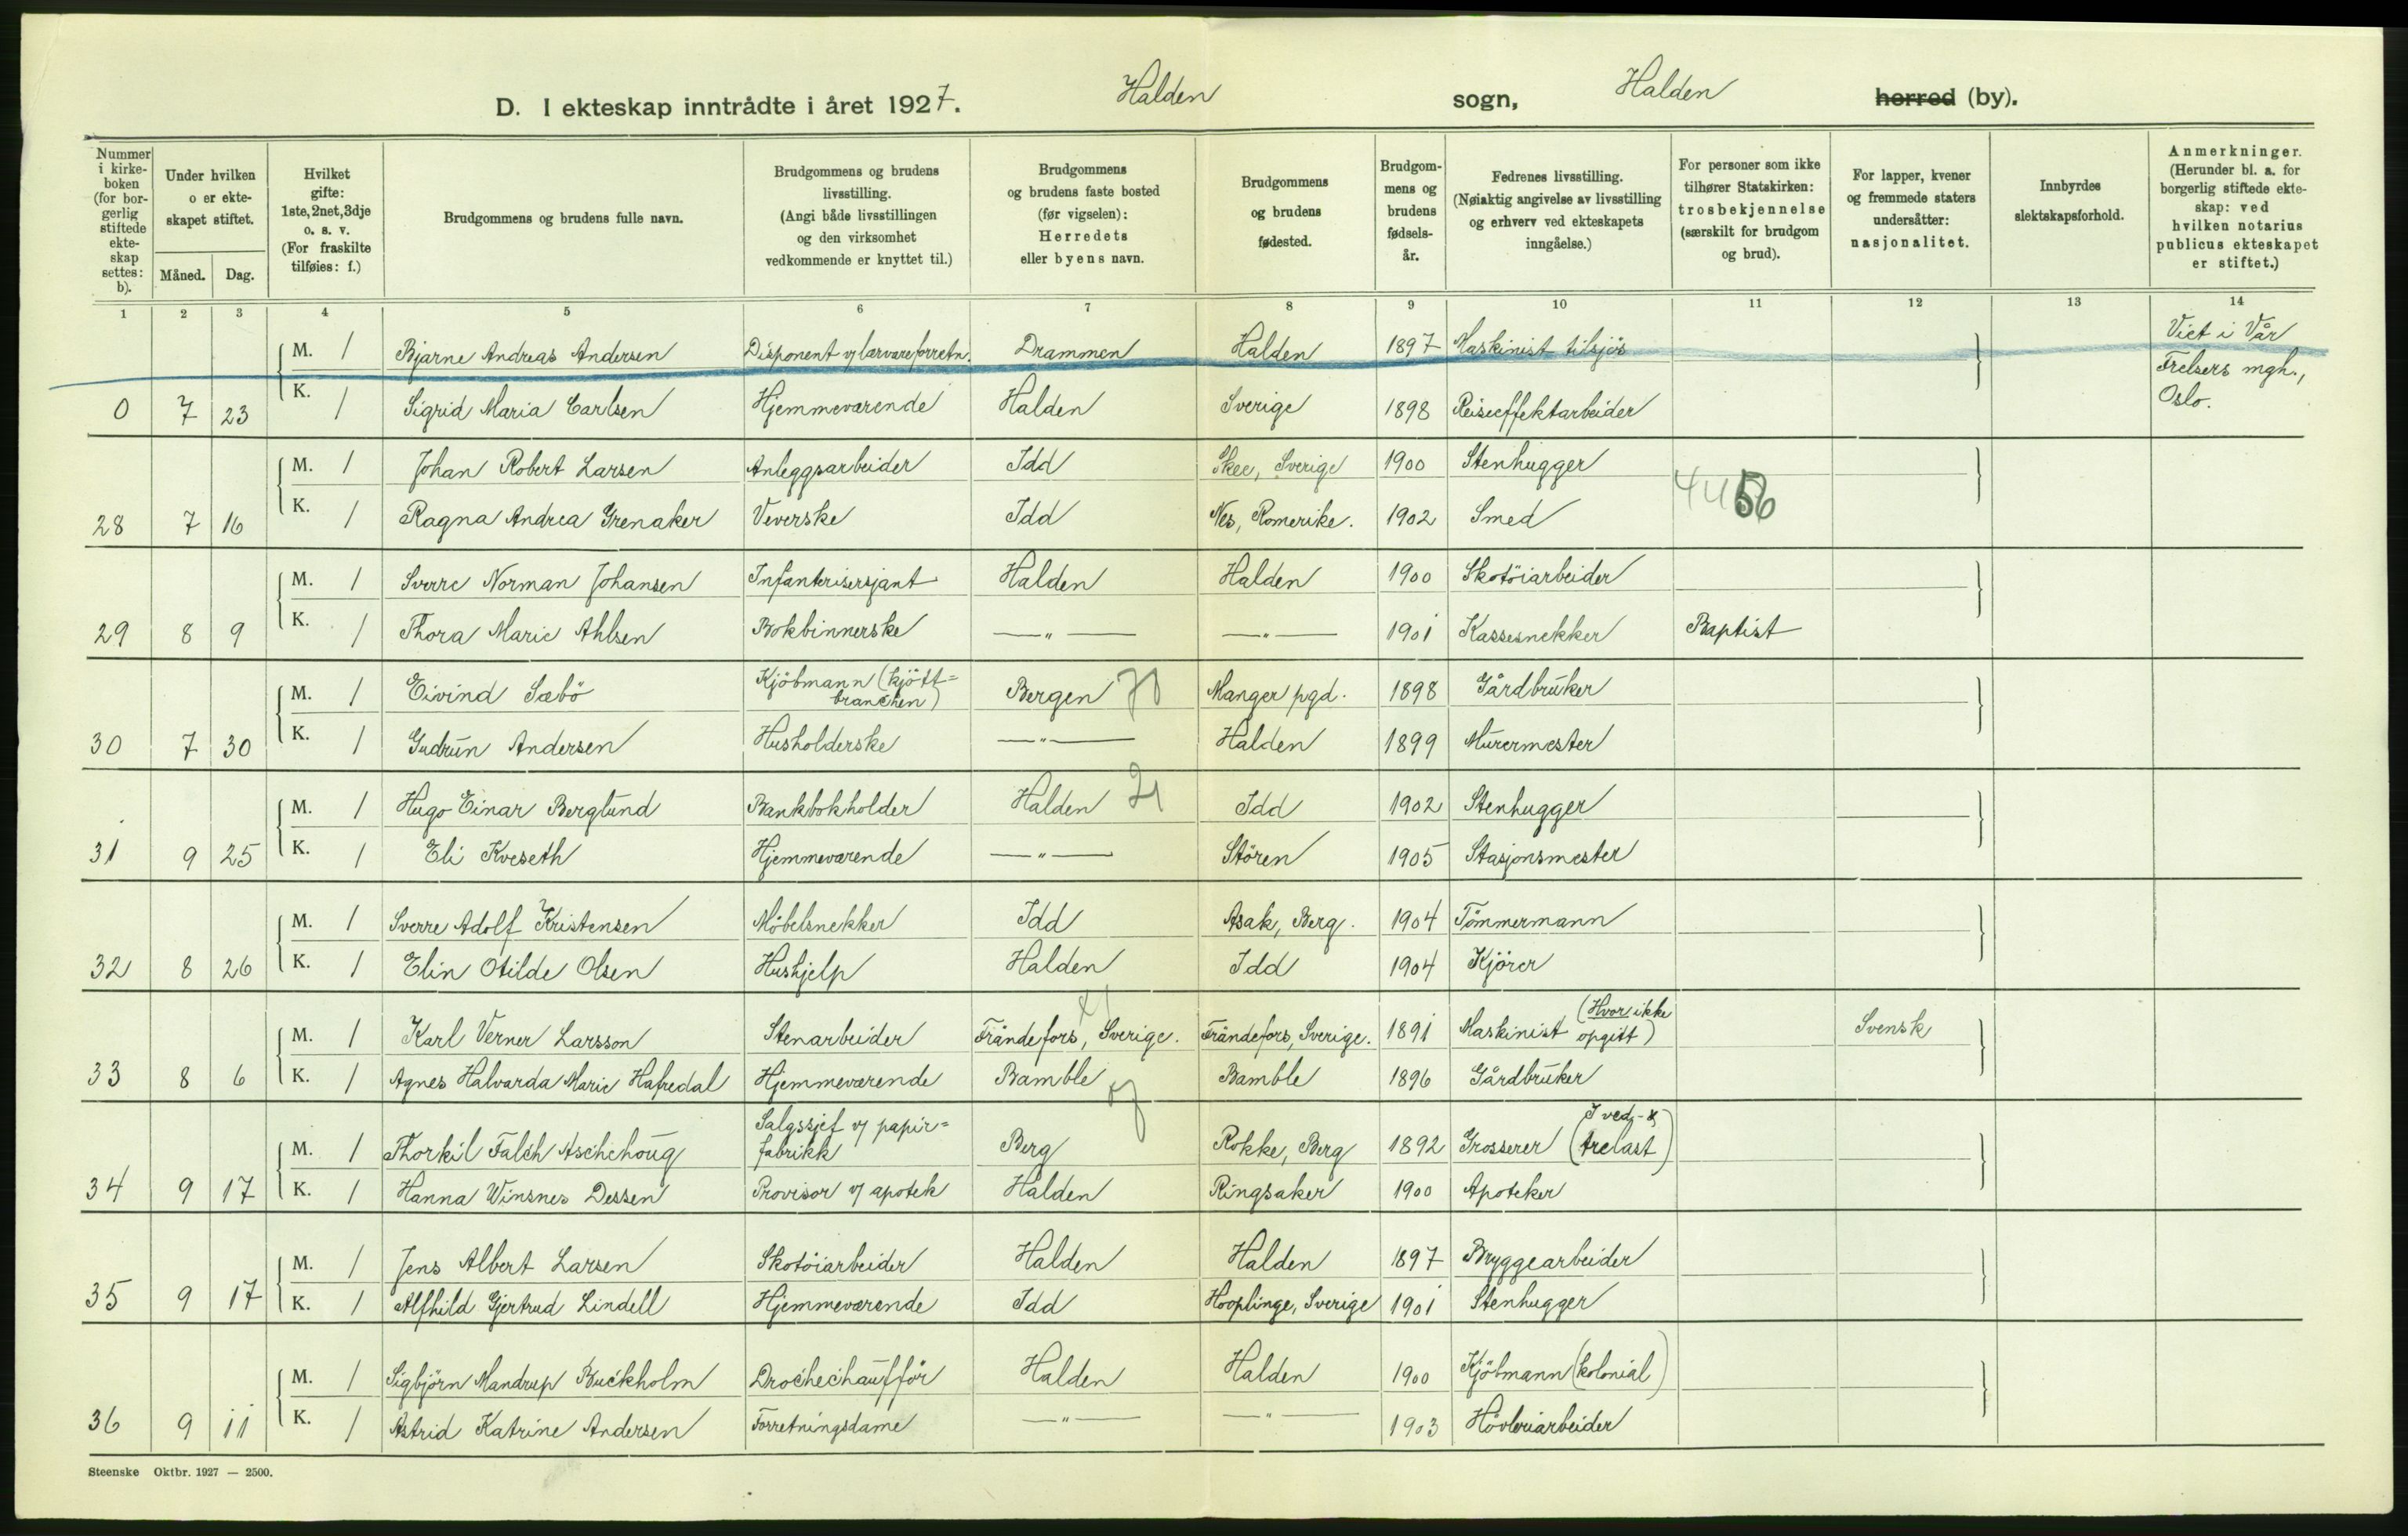 D. I ekteskap inntrådte i året 1927. Halden sogn, Halden herred (by).
Nummer i kirke-boken (for bor-gerlig stiftede ekte-skap settes: b).
Under hvilken o er ekte-skapet stiftet.
Måned. Dag.
Hvilket gifte: 1ste, 2net, 3dje o. s. v. (For fraskilte tilføies: f.)
Brudgommens og brudens fulle navn.
Brudgommens og brudens livsstilling. (Angi både livsstillingen og den virksomhet vedkommende er knyttet til.)
Brudgommens og brudens faste bosted (før vigselen): Herredets eller byens navn.
Brudgommens og brudens fødested.
Brudgom-mens og brudens fødsels-år.
Fedrenes livsstilling. (Nøiaktig angivelse av livsstilling og erhverv ved ekteskapets inngåelse.)
For personer som ikke tilhører Statskirken: trosbekjennelse (særskilt for brudgom og brud).
For lapper, kvener og fremmede staters undersåtter: nasjonalitet.
Innbyrdes slektskapsforhold.
Anmerkninger. (Herunder bl. a. for borgerlig stiftede ekte-skap: ved hvilken notarius publicus ekteskapet er stiftet.)
1 2 3 4 5 6 7 8 9 10 11 12 13 14
M. 1 Bjarne Andreas Andersen Disponent v/ lærvareforretn. Drammen Halden 1897 Maskinist tilsjös Viet i Vår Frelsers mgh., Oslo.
0 7 23 K. 1 Sigrid Maria Carlsen Hjemmeværende Halden Sverige 1898 Reiseeffektarbeider
M. 1 Johan Robert Larsen Anleggsarbeider Idd Skee, Sverige 1900 Stenhugger
28 7 16 K. 1 Ragna Andrea Grenaker Veverske Idd Nes, Romerike. 1902 Smed
M. 1 Sverre Norman Johansen Infanterisersjant Halden Halden 1900 Skotöiarbeider
29 8 9 K. 1 Thora Marie Ahlsen Bokbinnerske —"— —"— 1901 Kassesnekker Baptist
M. 1 Eivind Sæbö Kjöbmann (kjött=branchen) Bergen Manger pgd. 1898 Gårdbruker
30 7 30 K. 1 Gudrun Andersen Husholderske —"— Halden 1899 Murermester
M. 1 Hugo Einar Berglund Bankbokholder Halden 21 Idd 1902 Stenhugger
31 9 25 K. 1 Eli Kveseth Hjemmeværende —"— Stören 1905 Stasjonsmester
M. 1 Sverre Adolf Kristensen Möbelsnekker Idd Asak, Berg. 1904 Tömmermann
32 8 26 K. 1 Elin Otilde Olsen Hushjelp Halden Idd 1904 Kjörer
M. 1 Karl Verner Larsson Stenarbeider Frändefors, Sverige. Frändefors, Sverige. 1891 Maskinist (Hvor ikke opgitt) Svensk
33 8 6 K. 1 Agnes Halvarda Marie Hafredal Hjemmeværende Bamble Bamble 1896 Gårdbruker
M. 1 Thorkil Falch Aschehoug Salgssjef v/ papir=fabrikk Berg Rokke, Berg 1892 Grosserer (I ved- & trelast)
34 9 17 K. 1 Hanna Winsnes Dessen Provisor v/ apotek Halden Ringsaker 1900 Apoteker
M. 1 Jens Albert Larsen Skotöiarbeider Halden Halden 1897 Bryggearbeider
35 9 17 K. 1 Alfhild Gjertrud Lindell Hjemmeværende Idd Hooplinge, Sverige 1901 Stenhugger
M. 1 Sigbjörn Mandrup Buckholm Drochechaufför Halden Halden 1900 Kjöbmann (kolonial)
36 9 11 K. 1 Astrid Katrine Andersen Forretningsdame —"— —"— 1903 Hövleriarbeider
Steenske Oktbr. 1927 — 2500.